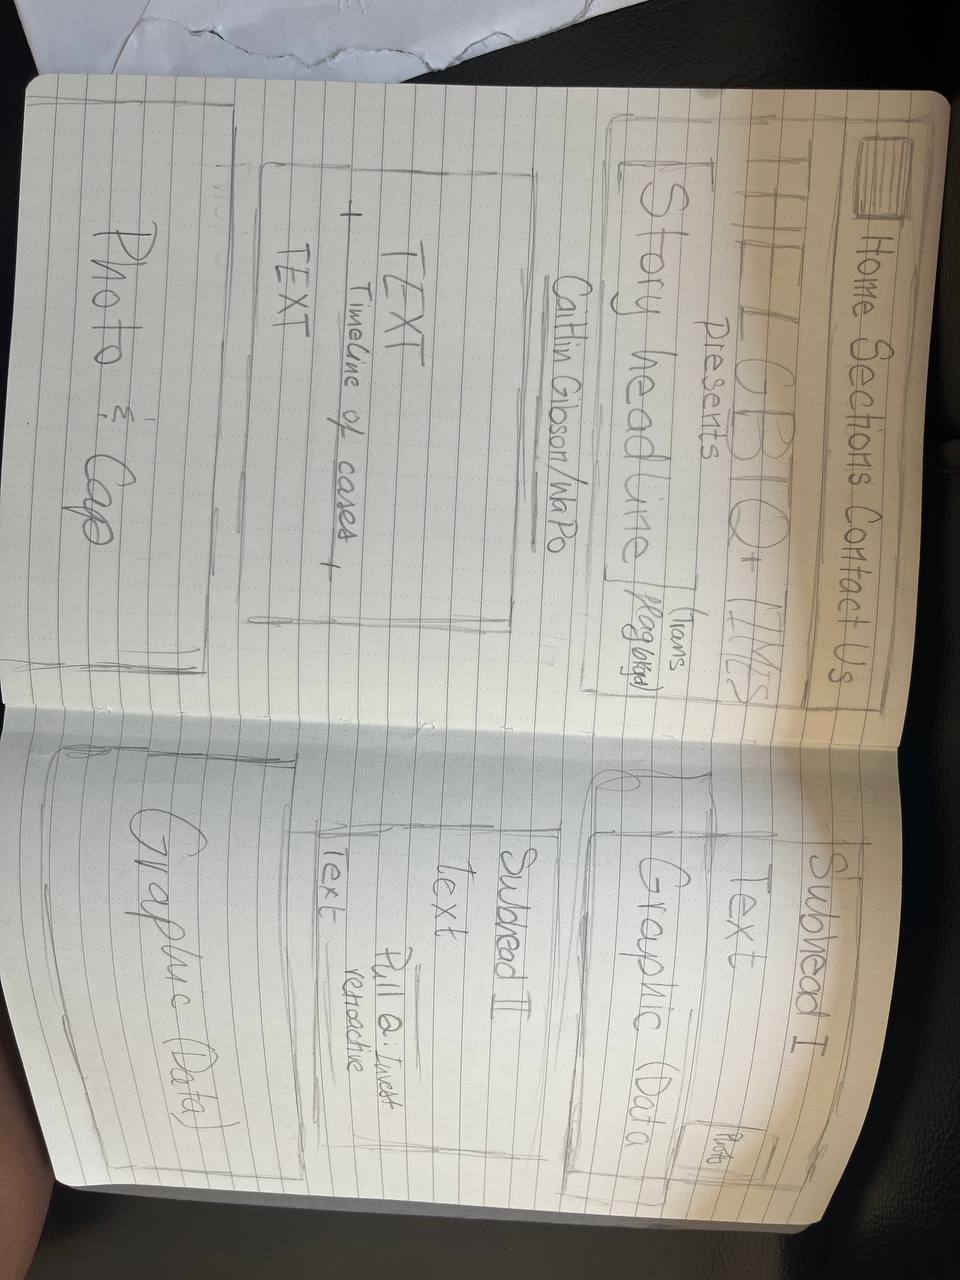 Home Sections Contact Us
THE LGBTQ+ TIMES
presents
Story headline
(Trans
flag bkgd)
Caitlin Gibson/WaPo
TEXT
+ Timeline of cases +
TEXT
Photo & Cap
Subhead I
Text
Photo
Graphic (Data
Subhead II
Text
Pull Q: Invest
retroactive
Text
Graphic (Data)